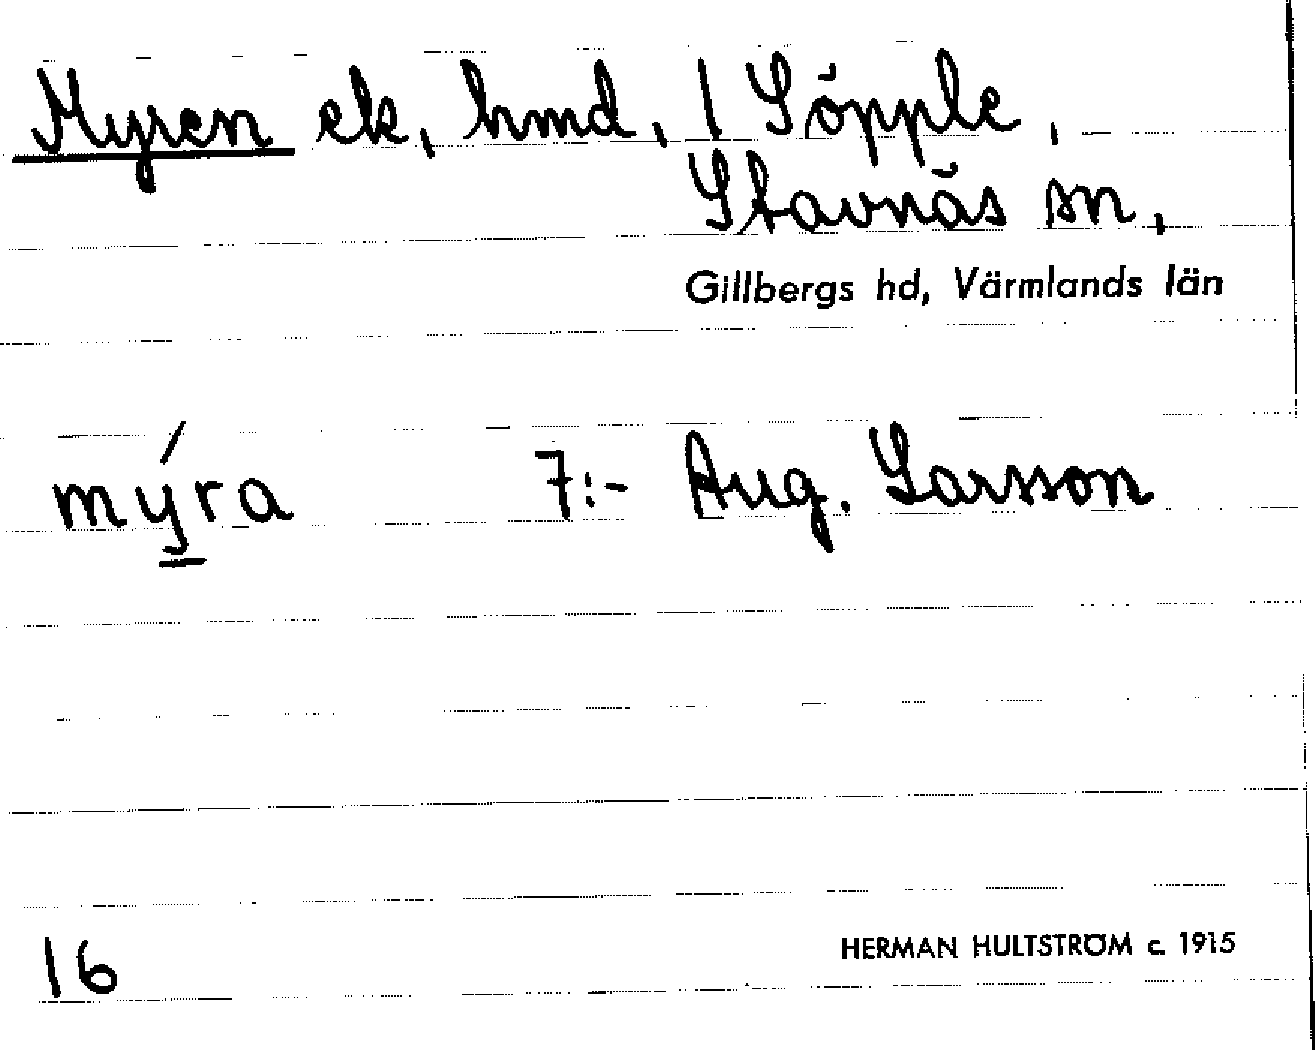 Myren ek, hmd, 1 Söpple,
Stavnäs sn,
Gillbergs hd, Värmlands län
mýra 7:- Aug. Larsson
16
HERMAN HULTSTRÖM c. 1915